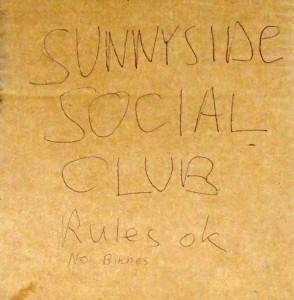 SUNNYSIDE
SOCIAL
CLUB
Rules ok
No Bitches